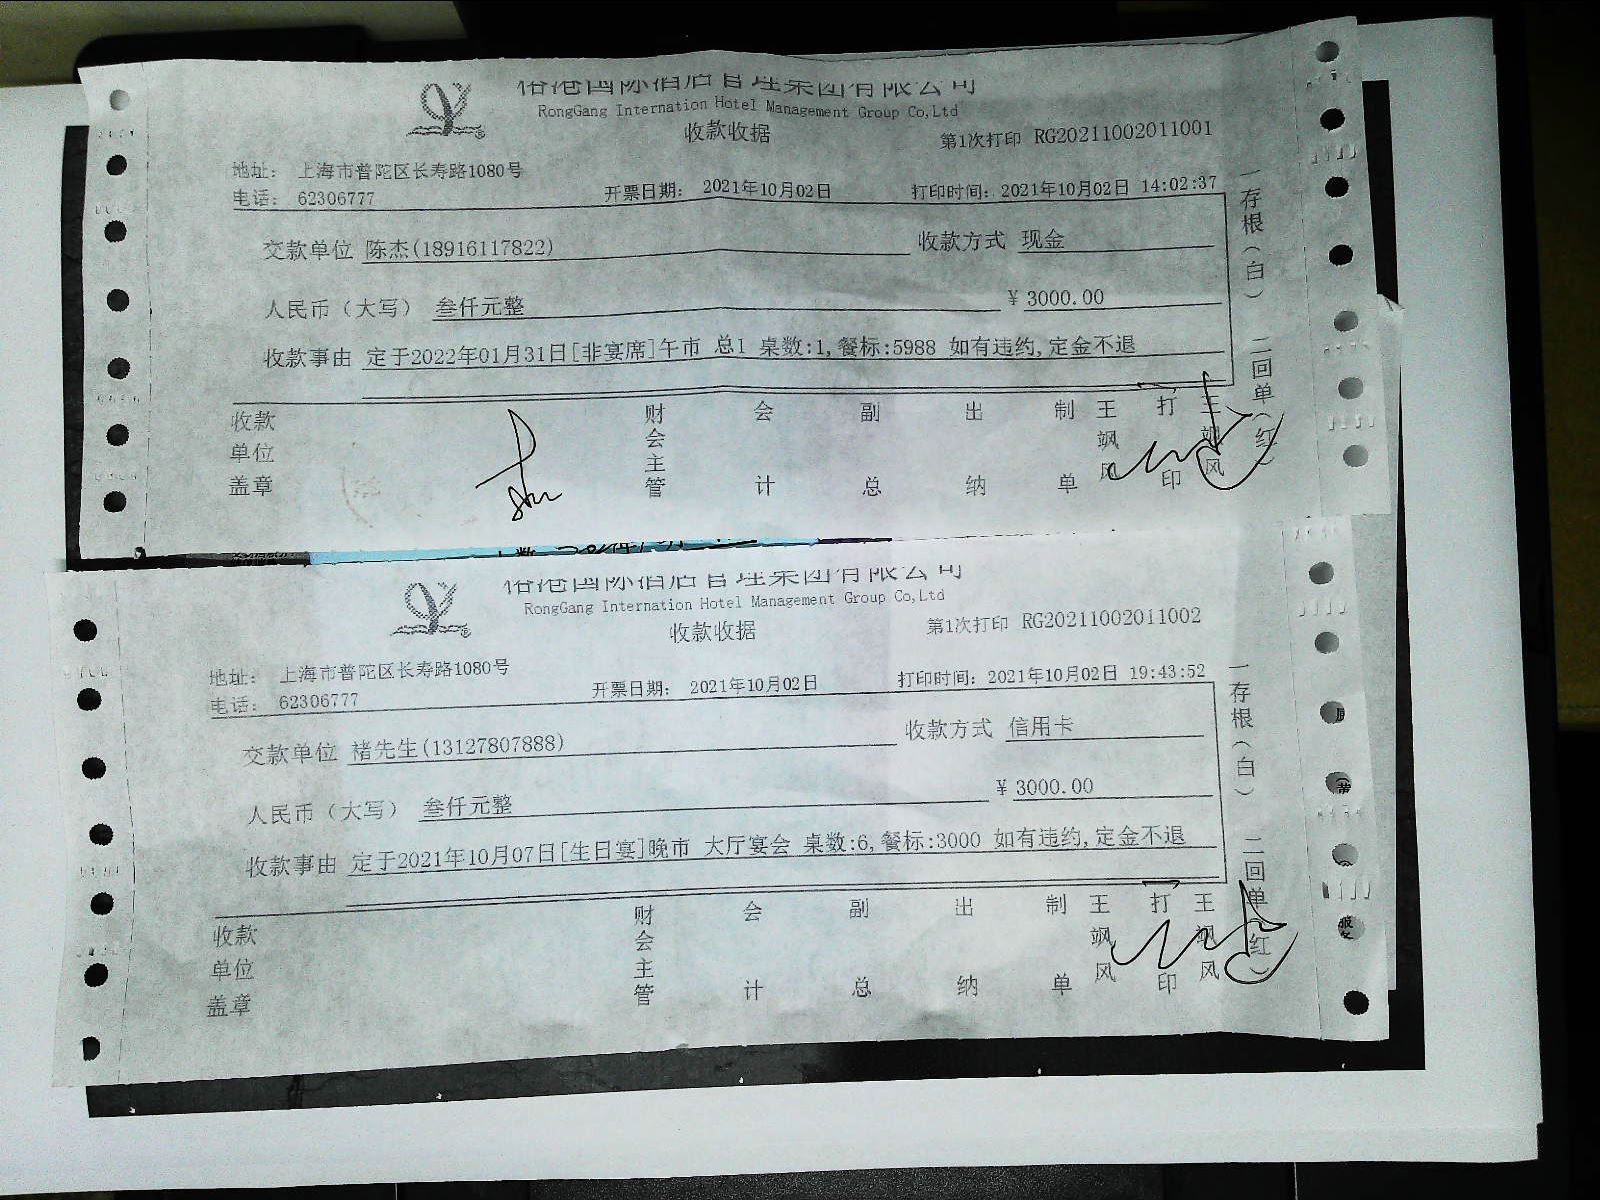 国际酒店管理集团有限公司
RongGang Internation Hotel Management Group Co,Ltd
收款收据
第1次打印 RG20211002011001
地址： 上海市普陀区长寿路1080号
电话： 62306777
开票日期： 2021年10月02日
打印时间：2021年10月02日 14:02:37
交款单位 陈杰(18916117822)
收款方式 现金
人民币（大写） 叁仟元整
¥ 3000.00
收款事由 定于2022年01月31日[非宴席]午市 总1 桌数:1,餐标:5988 如有违约,定金不退
一存根（白） 二回单（红）
收款单位盖章
财会主管 会计 副总 出纳 制单 王飒风 打印 王飒风
国际酒店管理集团有限公司
RongGang Internation Hotel Management Group Co,Ltd
收款收据
第1次打印 RG20211002011002
地址： 上海市普陀区长寿路1080号
电话： 62306777
开票日期： 2021年10月02日
打印时间：2021年10月02日 19:43:52
交款单位 褚先生(13127807888)
收款方式 信用卡
人民币（大写） 叁仟元整
¥ 3000.00
收款事由 定于2021年10月07日[生日宴]晚市 大厅宴会 桌数:6,餐标:3000 如有违约,定金不退
一存根（白） 二回单（红）
收款单位盖章
财会主管 会计 副总 出纳 制单 王飒风 打印 王飒风